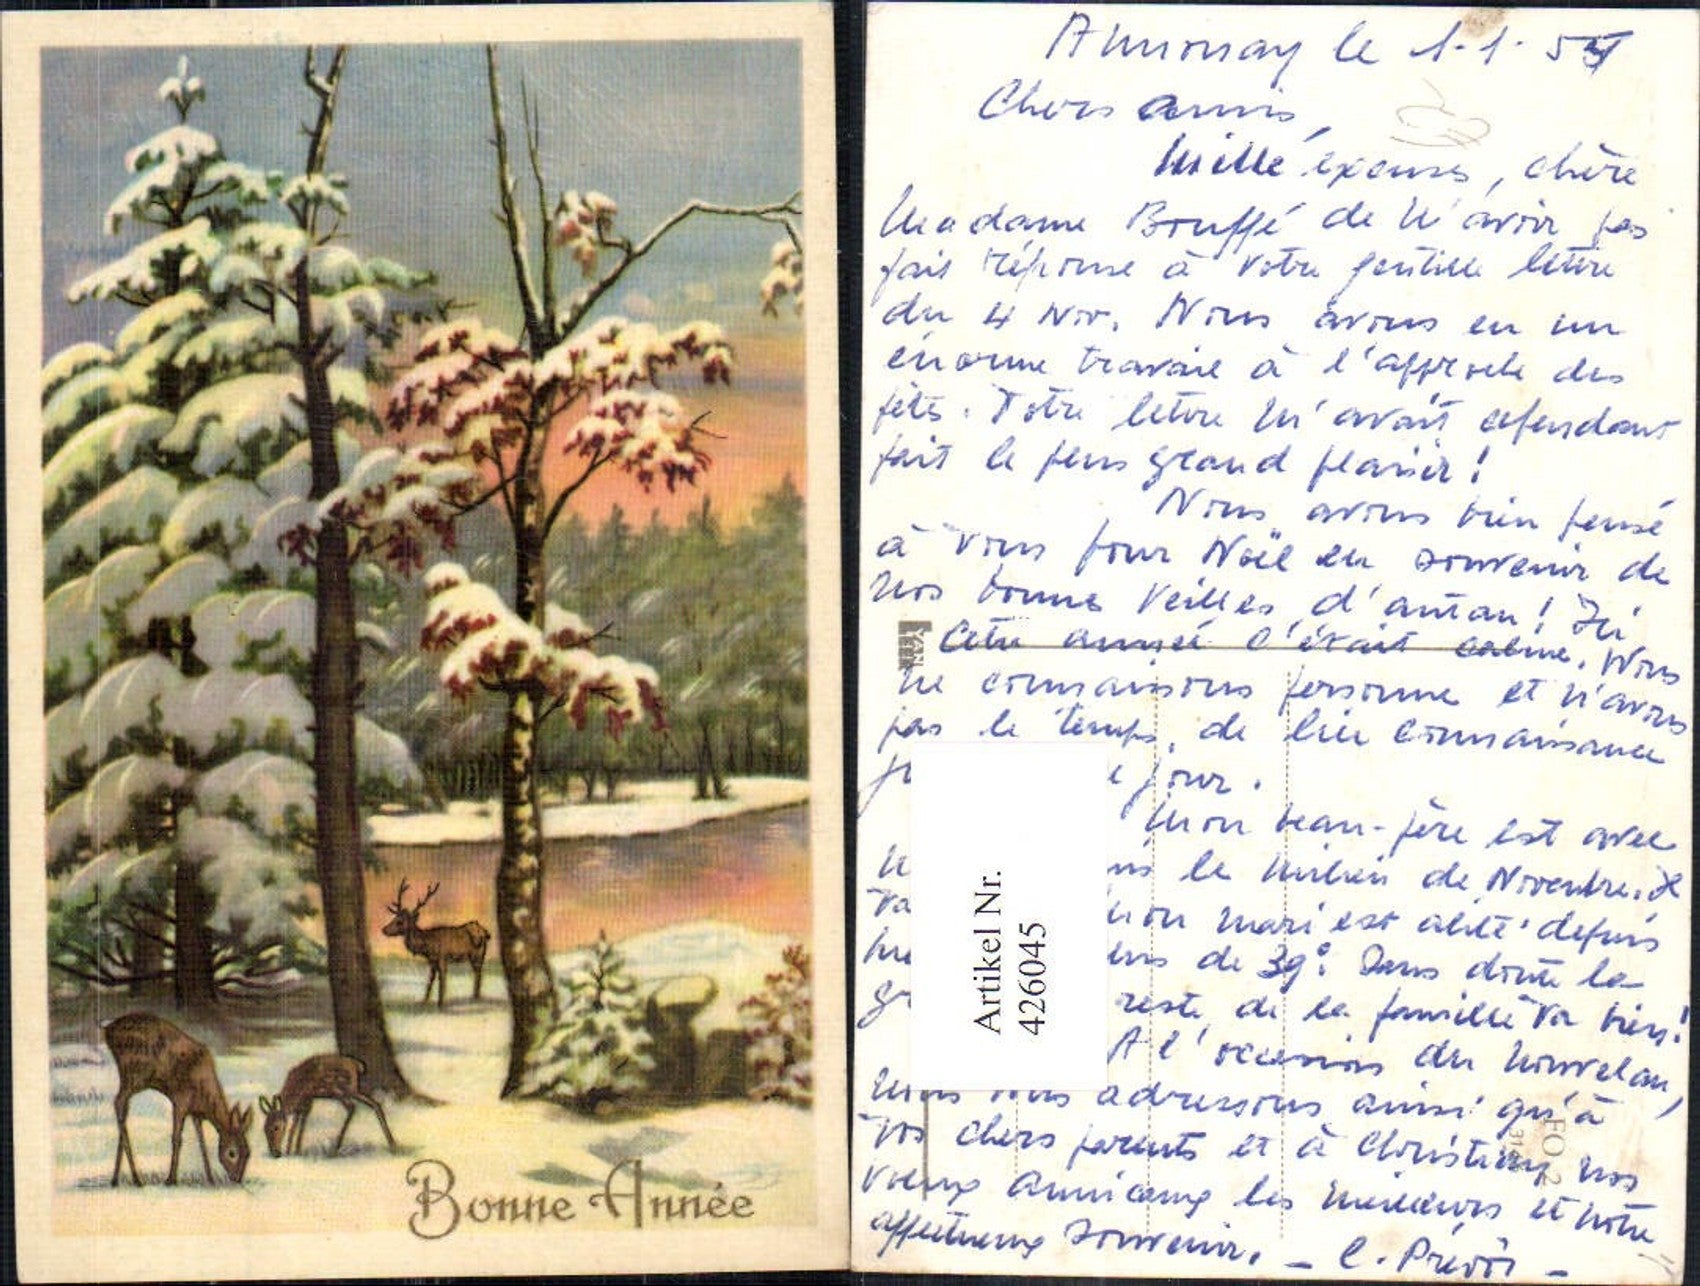 Bonne Année
Annonay le 1.1.55
Chers amis,
Mille excuses, chère
Madame Bouffé de n'avoir pas
fait réponse à votre gentille lettre
du 4 Nov. Nous avons eu un
énorme travail à l'approche des
fêtes. Votre lettre m'avait cependant
fait le plus grand plaisir!
Nous avons bien pensé
à vous pour Noël en souvenir de
nos bonnes veillées d'antan! Ici
Cette année c'était calme. Nous
ne connaissons personne et n'avons
pas le temps de lier connaissance
jour.
Mon beau-père est avec
le milieu de Novembre. Il
va mon mari est alité depuis
de 39°. Sans doute la
gr reste de la famille va bien!
A l'occasion du nouvel an,
nous vous adressons ainsi qu'à
vos chers parents et à Christiany nos
voeux amicaux les meilleurs et notre
affectueux souvenir. _ C. Prévôt _
Artikel Nr.
426045